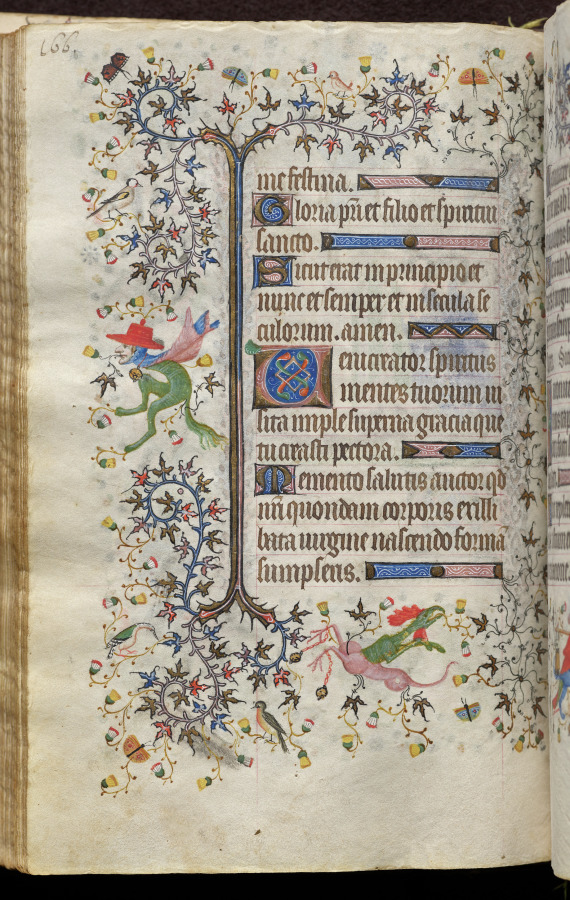 166.
me festina.
Gloria při et filio et spiritui
sancto.
Sicut erat in principio et
nunc et semper et in secula se
culorum. amen.
Veni creator spiritus
mentes tuorum ui
sita imple superna gracia que
tu creasti pectora.
Memento salutis auctor qđ
nři quondam corporis ex illi
bata uirgine nascendo formā
sumpseris.